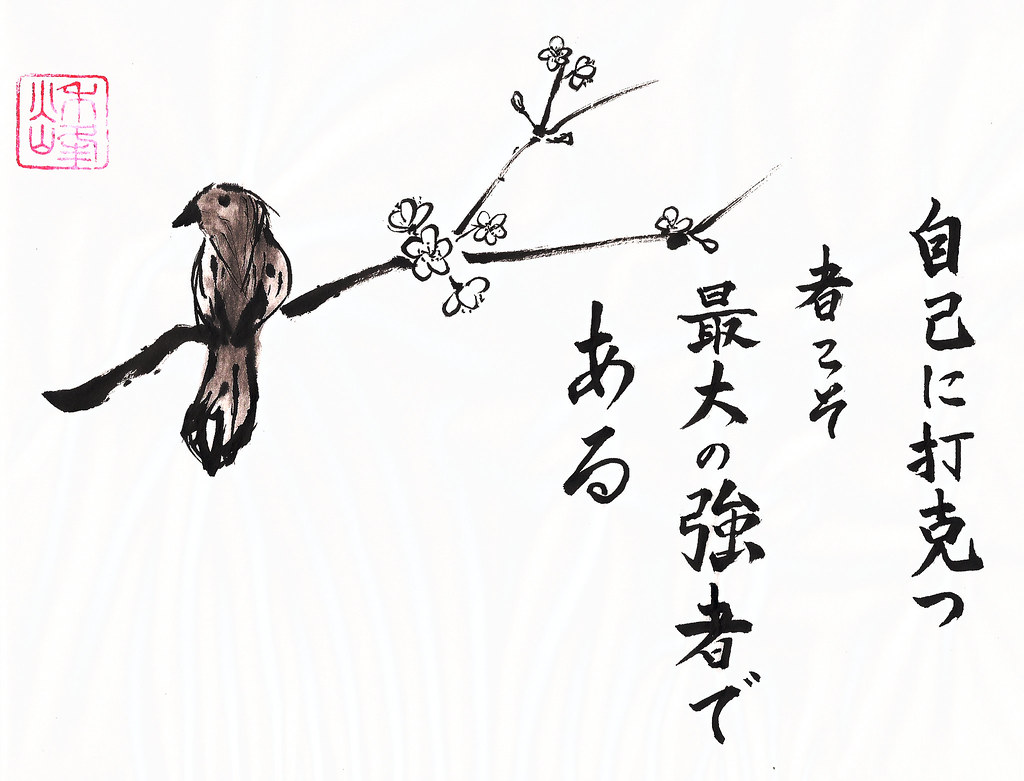 自己に打克つ
者こそ
最大の強者で
ある